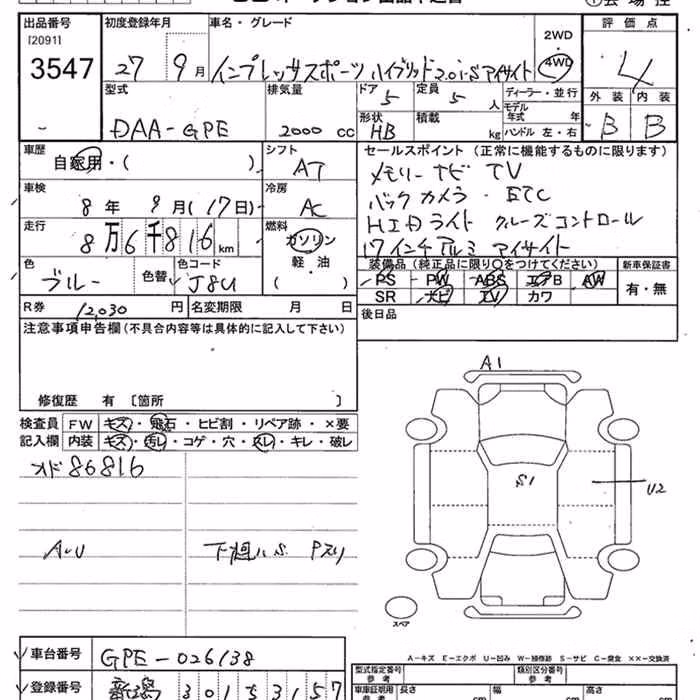 出品番号 初度登録年月 車名・グレード 2WD 評価点
[2091] 4WD
3547 27年 9月 インプレッサスポーツ ハイブリッド2.0i-Sアイサイト 4
型式 排気量 ドア 5 定員 5人 ディーラー・並行 外装 内装
DAA-GPE 2000 cc 形状 HB 積載 kg モデル年式 年 B B
ハンドル 左・右
車歴 自家用・( ) シフト AT セールスポイント (正常に機能するものに限ります)
メモリーナビ TV
車検 8年 9月(17日) 冷房 AC バックカメラ・ETC
走行 8万6千816km 燃料 ガソリン HIDライト クルーズコントロール
軽・油 17インチアルミ アイサイト
色 ブルー 色替 色コード J8U ( ) 装備品 (純正品に限り○をつけてください) 新車保証書
PS PW ABS エアB AW 有・無
R券 12,030円 名変期限 月 日 SR ナビ TV カワ
注意事項申告欄 (不具合内容等は具体的に記入して下さい) 後日品
修復歴 有 [箇所 ]
A1
検査員 FW キズ・飛石・ヒビ割・リペア跡・×要
記入欄 内装 キズ・汚レ・コゲ・穴・スレ・キレ・破レ
オド86816
S1 U2
スペア
A-キズ E-エクボ U-凹み W-補修跡 S-サビ C-腐食 ××-交換済
車台番号 GPE-026138 型式指定番号 参考 類別区分番号 参考
登録番号 新潟 301 5 3157 車庫証明用 参考 長さ cm 幅 cm 高さ cm